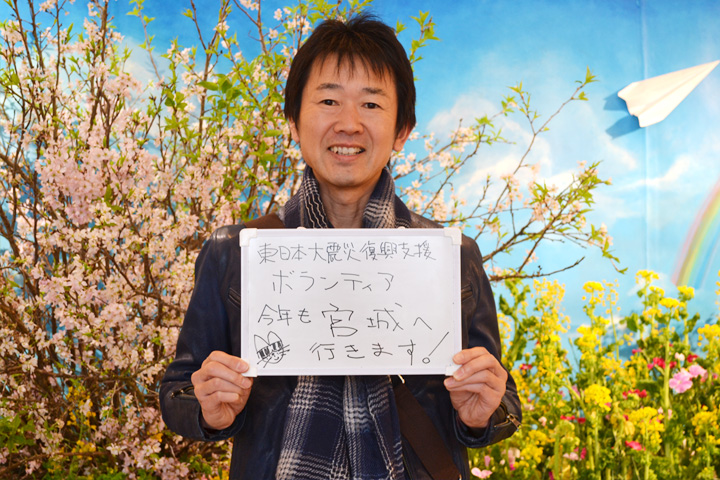 東日本大震災復興支援
ボランティア
今年も宮城へ
行きます!